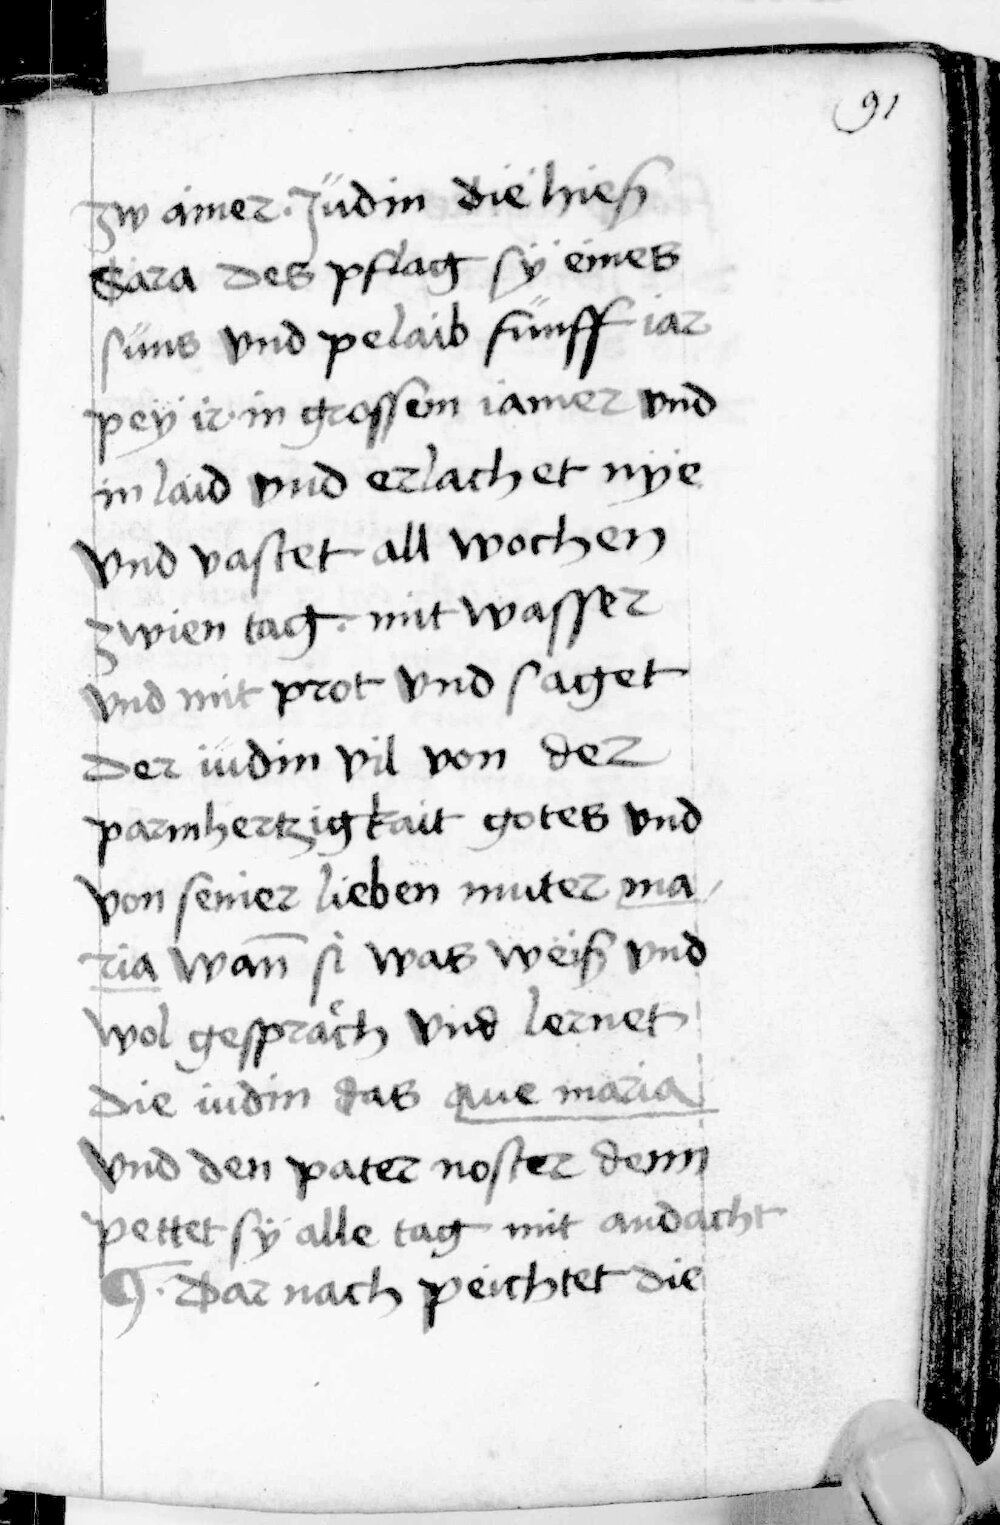 91
zw ainer. Jüdin die hieß
Sara des pflag sÿ eines
süns vnd pelaib fünff iar
peÿ ir. in grossem iamer vnd
in laid vnd erlachet nÿe
vnd vastet all wochen
zwien tag. mit wasser
vnd mit prot vnd saget
der iüdin vil von der
parmhertzigkait gotes vnd
von seiner lieben muter ma/
ria wan̄ si was weiß vnd
wol gespräch vnd lernet
die iudin das Aue maria
vnd den pater noster denn
pettet sÿ alle tag mit andacht
¶. Dar nach peichtet die